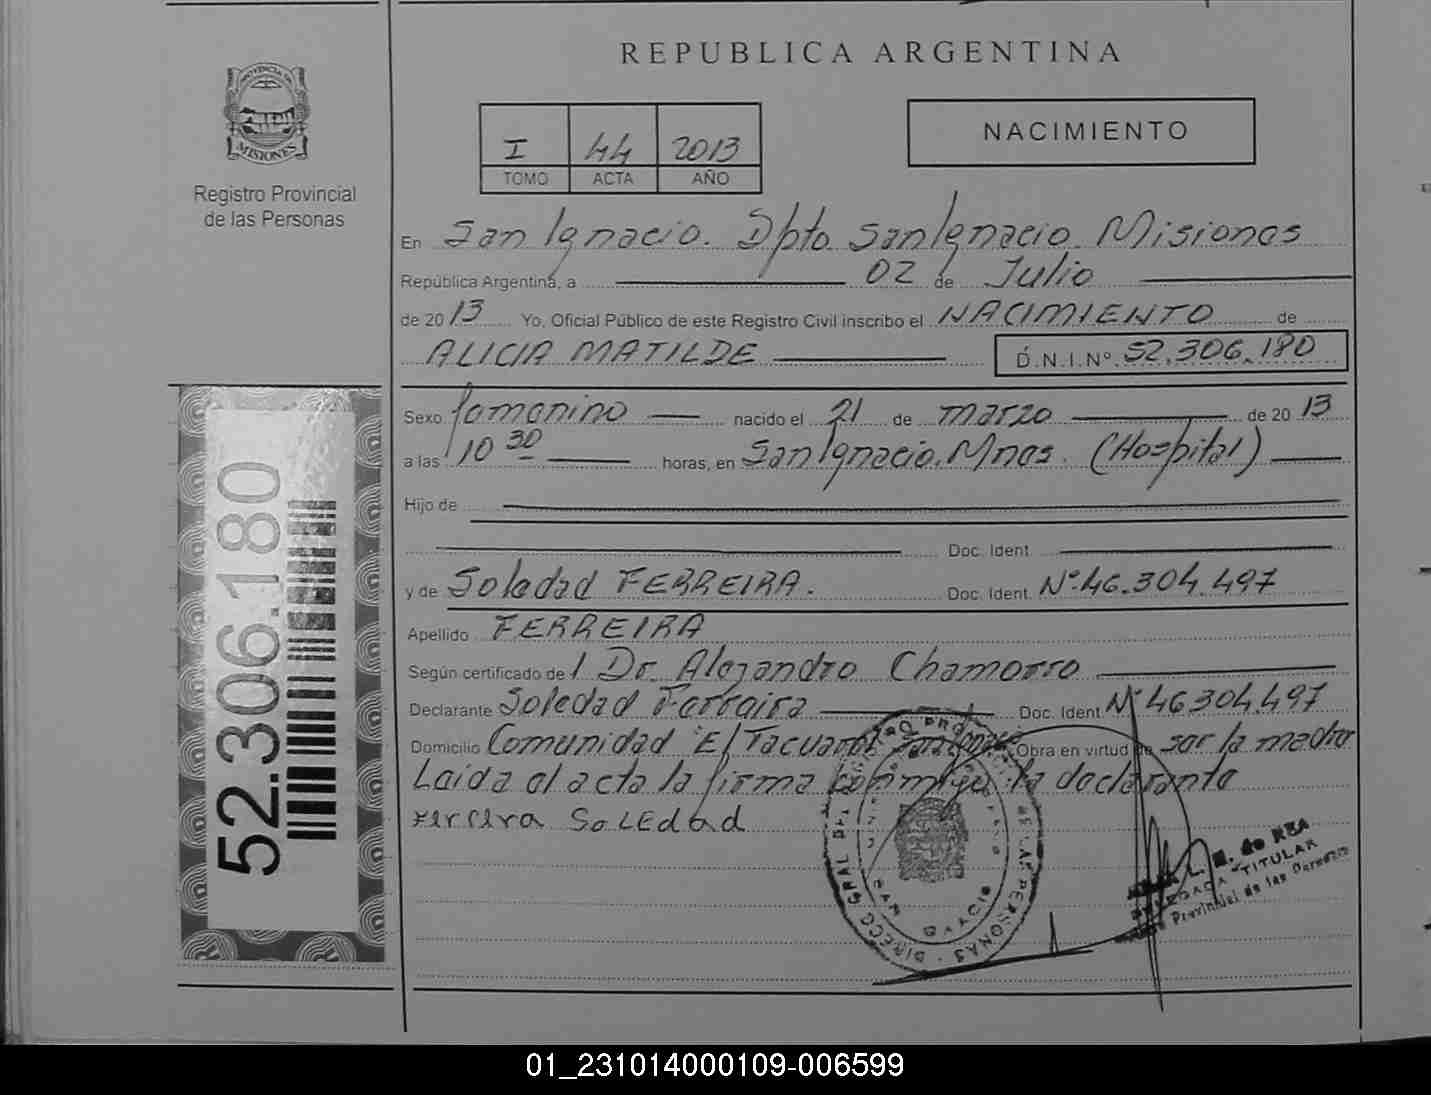 REPUBLICA ARGENTINA
PROVINCIA DE
MISIONES
Registro Provincial
de las Personas
I 44 2013
TOMO ACTA AÑO
NACIMIENTO
En San Ignacio. Dpto San Ignacio. Misiones
República Argentina, a 02 de Julio
de 2013 Yo, Oficial Público de este Registro Civil inscribo el NACIMIENTO de
ALICIA MATILDE D.N.I.Nº 52.306.180
Sexo femenino nacido el 21 de marzo de 2013
a las 10 30 horas, en San Ignacio. Mnes. (Hospital)
Hijo de
Doc. Ident.
y de Soledad FERREIRA. Doc. Ident. Nº 46.304.497
Apellido FERREIRA
Según certificado de / Dr. Alejandro Chamorro
Declarante Soledad Ferreira Doc. Ident. Nº 46304.497
Domicilio Comunidad "El Tacuaral" Obra en virtud de ser la madre
Leída el acta la firma conmigo la declarante
Fercera SoLEdad
DIRECC GRAL DEL REGISTRO PROVINCIAL DE LAS PERSONAS
SAN IGNACIO
de REA
DELEGADA TITULAR
Provincial de las Personas
52.306.180
01_231014000109-006599